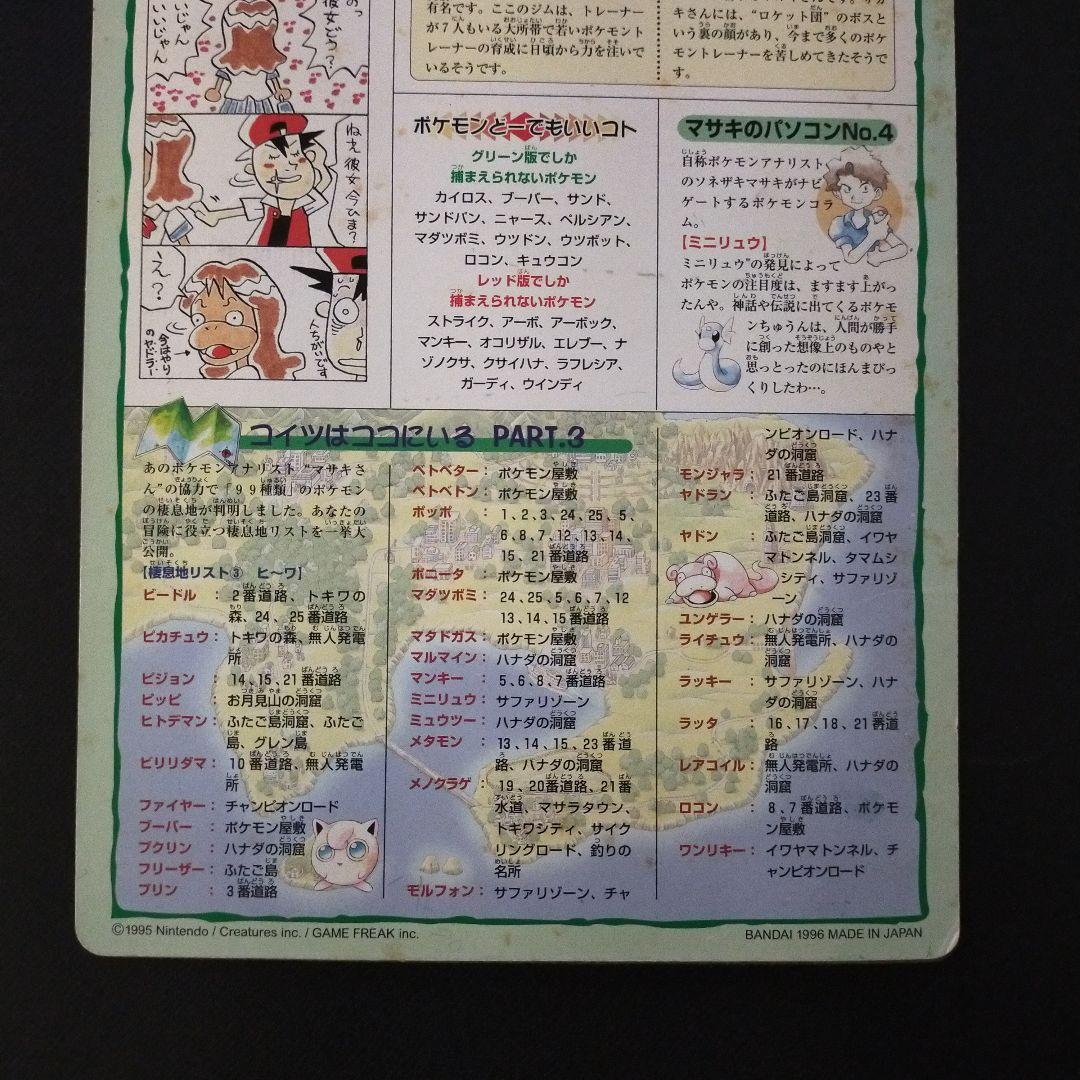 のっ
彼女どう?
じゃん
いいじゃん
ねえ彼女今ひま?
え?
今はやり
のヤドラー
人ちがいです
有名です。ここのジムは、トレーナー
が7人もいる大所帯で若いポケモント
レーナーの育成に日頃から力を注いで
いるそうです。
キさんには、“ロケット団”のボスと
いう裏の顔があり、今まで多くのポケ
モントレーナーを苦しめてきたそうで
す。
ポケモンどーでもいいコト
グリーン版でしか
捕まえられないポケモン
カイロス、ブーバー、サンド、
サンドパン、ニャース、ペルシアン、
マダツボミ、ウツドン、ウツボット、
ロコン、キュウコン
レッド版でしか
捕まえられないポケモン
ストライク、アーボ、アーボック、
マンキー、オコリザル、エレブー、ナ
ゾノクサ、クサイハナ、ラフレシア、
ガーディ、ウインディ
マサキのパソコンNo.4
自称ポケモンアナリスト
のソネザキマサキがナビ
ゲートするポケモンコラ
ム。
【ミニリュウ】
ミニリュウ”の発見によって
ポケモンの注目度は、ますます上がっ
たんや。神話や伝説に出てくるポケモ
ンちゅうんは、人間が勝手
に創った想像上のものやと
思っとったのにほんまびっ
くりしたわ…。
コイツはココにいる PART.3
あのポケモンアナリスト“マサキさ
ん”の協力で「99種類」のポケモン
の棲息地が判明しました。あなたの
冒険に役立つ棲息地リストを一挙大
公開。
【棲息地リスト③ ヒ〜ワ】
ビードル : 2番道路、トキワの
森、24、25番道路
ピカチュウ: トキワの森、無人発電
所
ピジョン : 14、15、21番道路
ピッピ : お月見山の洞窟
ヒトデマン: ふたご島洞窟、ふたご
島、グレン島
ビリリダマ: 10番道路、無人発電
所
ファイヤー: チャンピオンロード
ブーバー : ポケモン屋敷
プクリン : ハナダの洞窟
フリーザー: ふたご島
プリン : 3番道路
ベトベター: ポケモン屋敷
ベトベトン: ポケモン屋敷
ポッポ : 1、2、3、24、25、5、
6、8、7、12、13、14、
15、21番道路
ポニータ : ポケモン屋敷
マダツボミ: 24、25、5、6、7、12
13、14、15番道路
マタドガス: ポケモン屋敷
マルマイン: ハナダの洞窟
マンキー : 5、6、8、7番道路
ミニリュウ: サファリゾーン
ミュウツー: ハナダの洞窟
メタモン : 13、14、15、23番道
路、ハナダの洞窟
メノクラゲ: 19、20番道路、21番
水道、マサラタウン、
トキワシティ、サイク
リングロード、釣りの
名所
モルフォン: サファリゾーン、チャ
ンピオンロード、ハナ
ダの洞窟
モンジャラ: 21番道路
ヤドラン : ふたご島洞窟、23番
道路、ハナダの洞窟
ヤドン : ふたご島洞窟、イワヤ
マトンネル、タマムシ
シティ、サファリゾ
ーン
ユンゲラー: ハナダの洞窟
ライチュウ: 無人発電所、ハナダの
洞窟
ラッキー : サファリゾーン、ハナ
ダの洞窟
ラッタ : 16、17、18、21番道
路
レアコイル: 無人発電所、ハナダの
洞窟
ロコン : 8、7番道路、ポケモ
ン屋敷
ワンリキー: イワヤマトンネル、チ
ャンピオンロード
©1995 Nintendo / Creatures inc. / GAME FREAK inc.
BANDAI 1996 MADE IN JAPAN